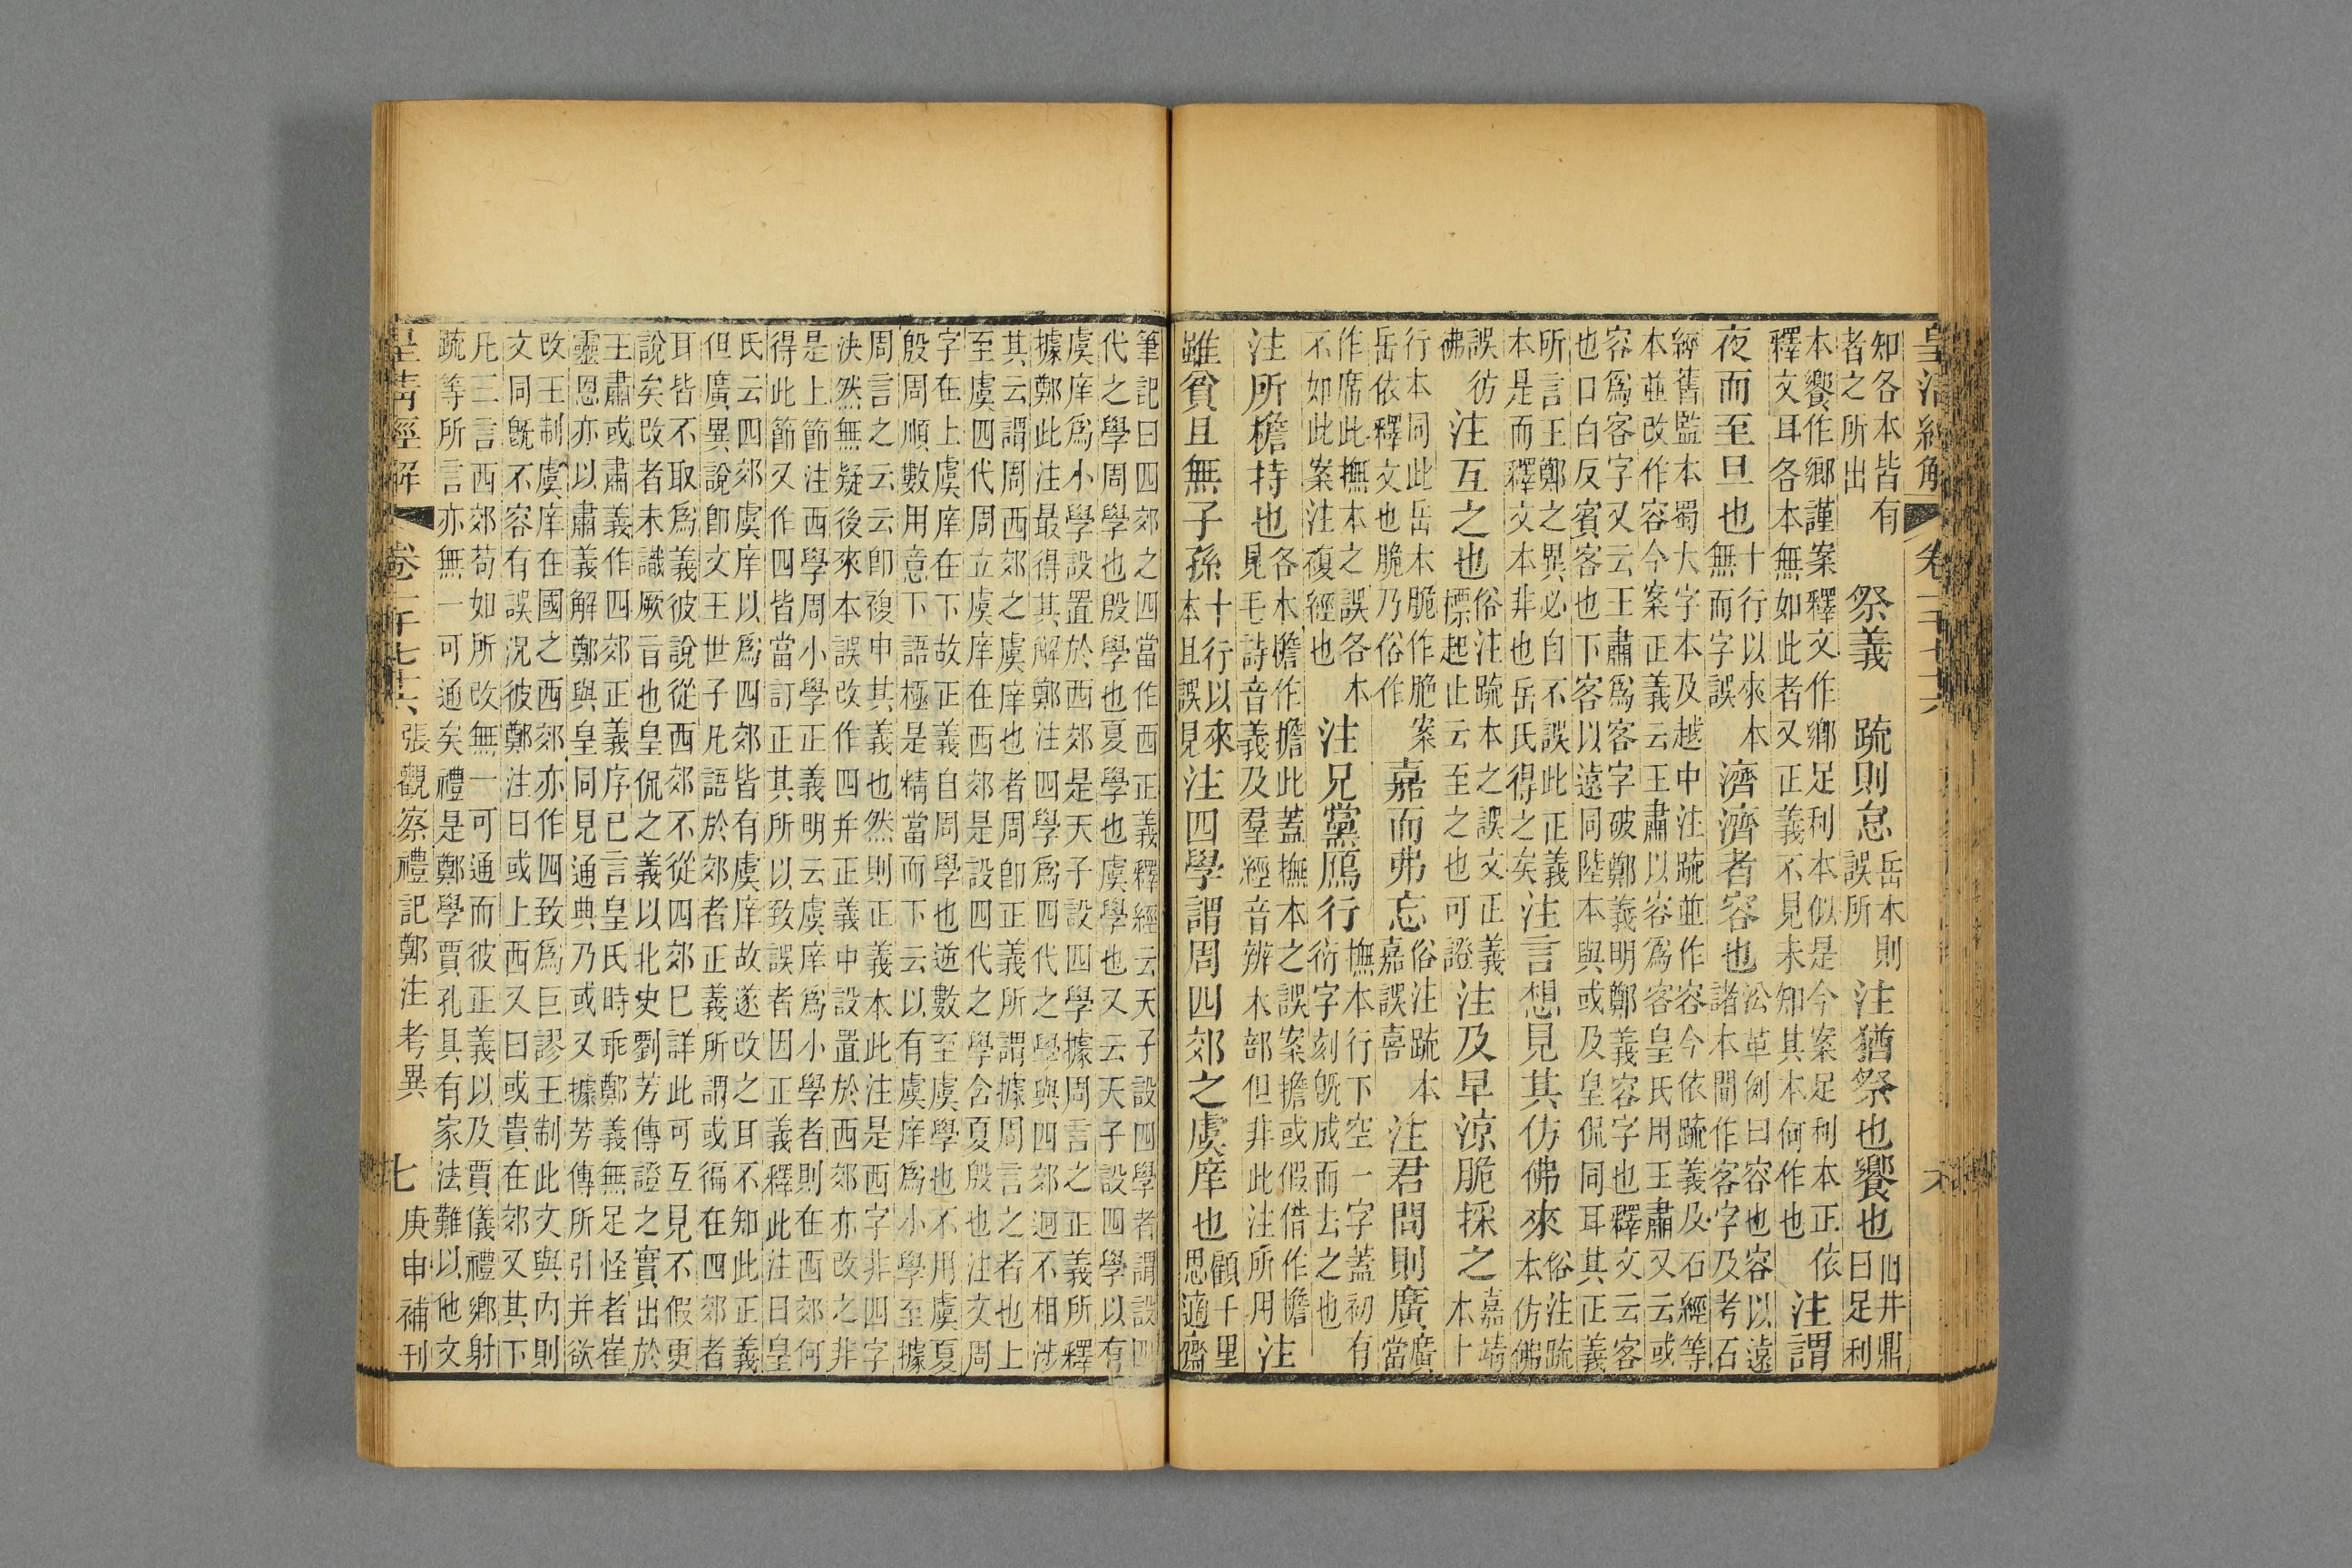 皇清經解 卷一千七十六 六
知各本皆有
者之所出
祭義 疏則怠
岳本則
誤所
注猶祭也饗也
山井鼎
曰足利
本饗作鄉謹案釋文作鄉足利本似是今案足利本正依
釋文耳各本無如此者又正義不見未知其本何作也
注謂
夜而至旦也
十行以來本
無而字誤
濟濟者容也
㳂革例曰容也容以遠
諸本閒作客字及考石
經舊監本蜀大字本及越中注疏並作容今依疏義及石經等
本並改作容今案正義云王肅以容爲容皇氏用王肅又云或
容爲客字又云王肅爲客字破鄭義明鄭義容字也釋文云客
也口白反賓客也下客以遠同陸本與或及皇侃同耳其正義
所言王鄭之異必自不誤此正義
本是而釋文本非也岳氏得之矣
注言想見其仿佛來
俗注疏
本仿佛
誤彷
佛
注互之也
俗注疏本之誤文正義
慓起止云至之也可證
注及早涼脆採之
嘉靖
本十
行本同此岳本脆作脃案
岳依釋文也脆乃俗作
嘉而弗忘
俗注疏本
嘉誤喜
注君問則廣
廣
當
作席此撫本之誤各本
不如此案注複經也
注兄黨鴈行
撫本行下空一字蓋初有
衍字刻旣成而去之也
注所檐持也
各本檐作擔此蓋撫本之誤案擔或假借作檐
見毛詩音義及羣經音辨木部但非此注所用
注
雖貧且無子孫
十行以來
本且誤見
注四學謂周四郊之虞庠也
顧千里
思適齋
筆記曰四郊之四當作西正義釋經云天子設四學者謂設四
代之學周學也殷學也夏學也虞學也又云天子設四學以有
虞庠爲小學設置於西郊是天子設四學據周言之正義所釋
據鄭此注最得其解鄭注四學爲四代之學與四郊迥不相涉
其云謂周西郊之虞庠也者周卽正義所謂據周言之者也上
至虞四代周立虞庠在西郊是設四代之學含夏殷也注文周
字在上虞庠在下故正義自周學也逆數至虞學也不用虞夏
殷周順數用意下語極是精當而下云以有虞庠爲小學至據
周言之云云卽複申其義也然則正義本此注是西字非四字
決然無疑後來本誤改作四幷正義中設置於西郊亦改之非
是上節注西學周小學正義明云虞庠爲小學者則在西郊何
得此節又作四皆當訂正其所以致誤者因正義釋此注曰皇
氏云四郊虞庠以爲四郊皆有虞庠故遂改之耳不知此正義
但廣異說卽文王世子凡語於郊者正義所謂或徧在四郊者
耳皆不取爲義彼說從西郊不從四郊巳詳此可互見不假更
說矣改者未識厥旨也皇侃之義以北史劉芳傳證之實出於
王肅或肅義作四郊正義序已言皇氏時乖鄭義無足怪者崔
靈恩亦以肅義解鄭與皇同見通典乃或又據芳傳所引幷欲
改王制虞庠在國之西郊亦作四致爲巨謬王制此文與內則
文同旣不容有誤況彼鄭注曰或上西又曰或貴在郊又其下
凡三言西郊苟如所改無一可通而彼正義以及賈儀禮鄉射
疏等所言亦無一可通矣禮是鄭學賈孔具有家法難以他文
皇清經解 卷一千七十六 張觀察禮記鄭注考異 七 庚申補刊